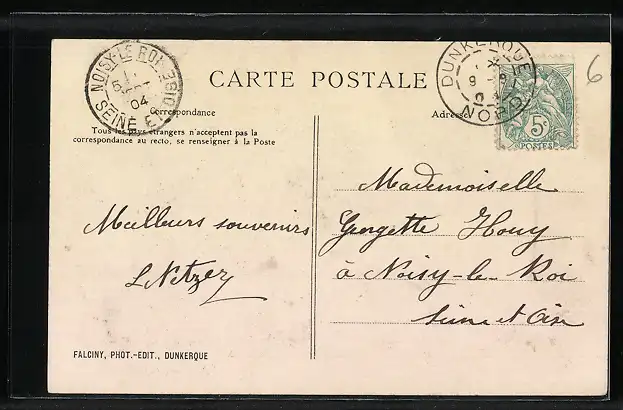 NOISY-LE ROI
04
SEINE ET OISE
CARTE POSTALE
DUNKERQUE
NORD
5c
POSTES
6
Correspondance
Adresse
Tous les pays étrangers n'acceptent pas la
correspondance au recto, se renseigner à la Poste
Meilleurs souvenirs
L Netzer
Mademoiselle
Georgette Houy
à Noisy-le-Roi
Seine et Oise
FALCINY, PHOT.-EDIT., DUNKERQUE